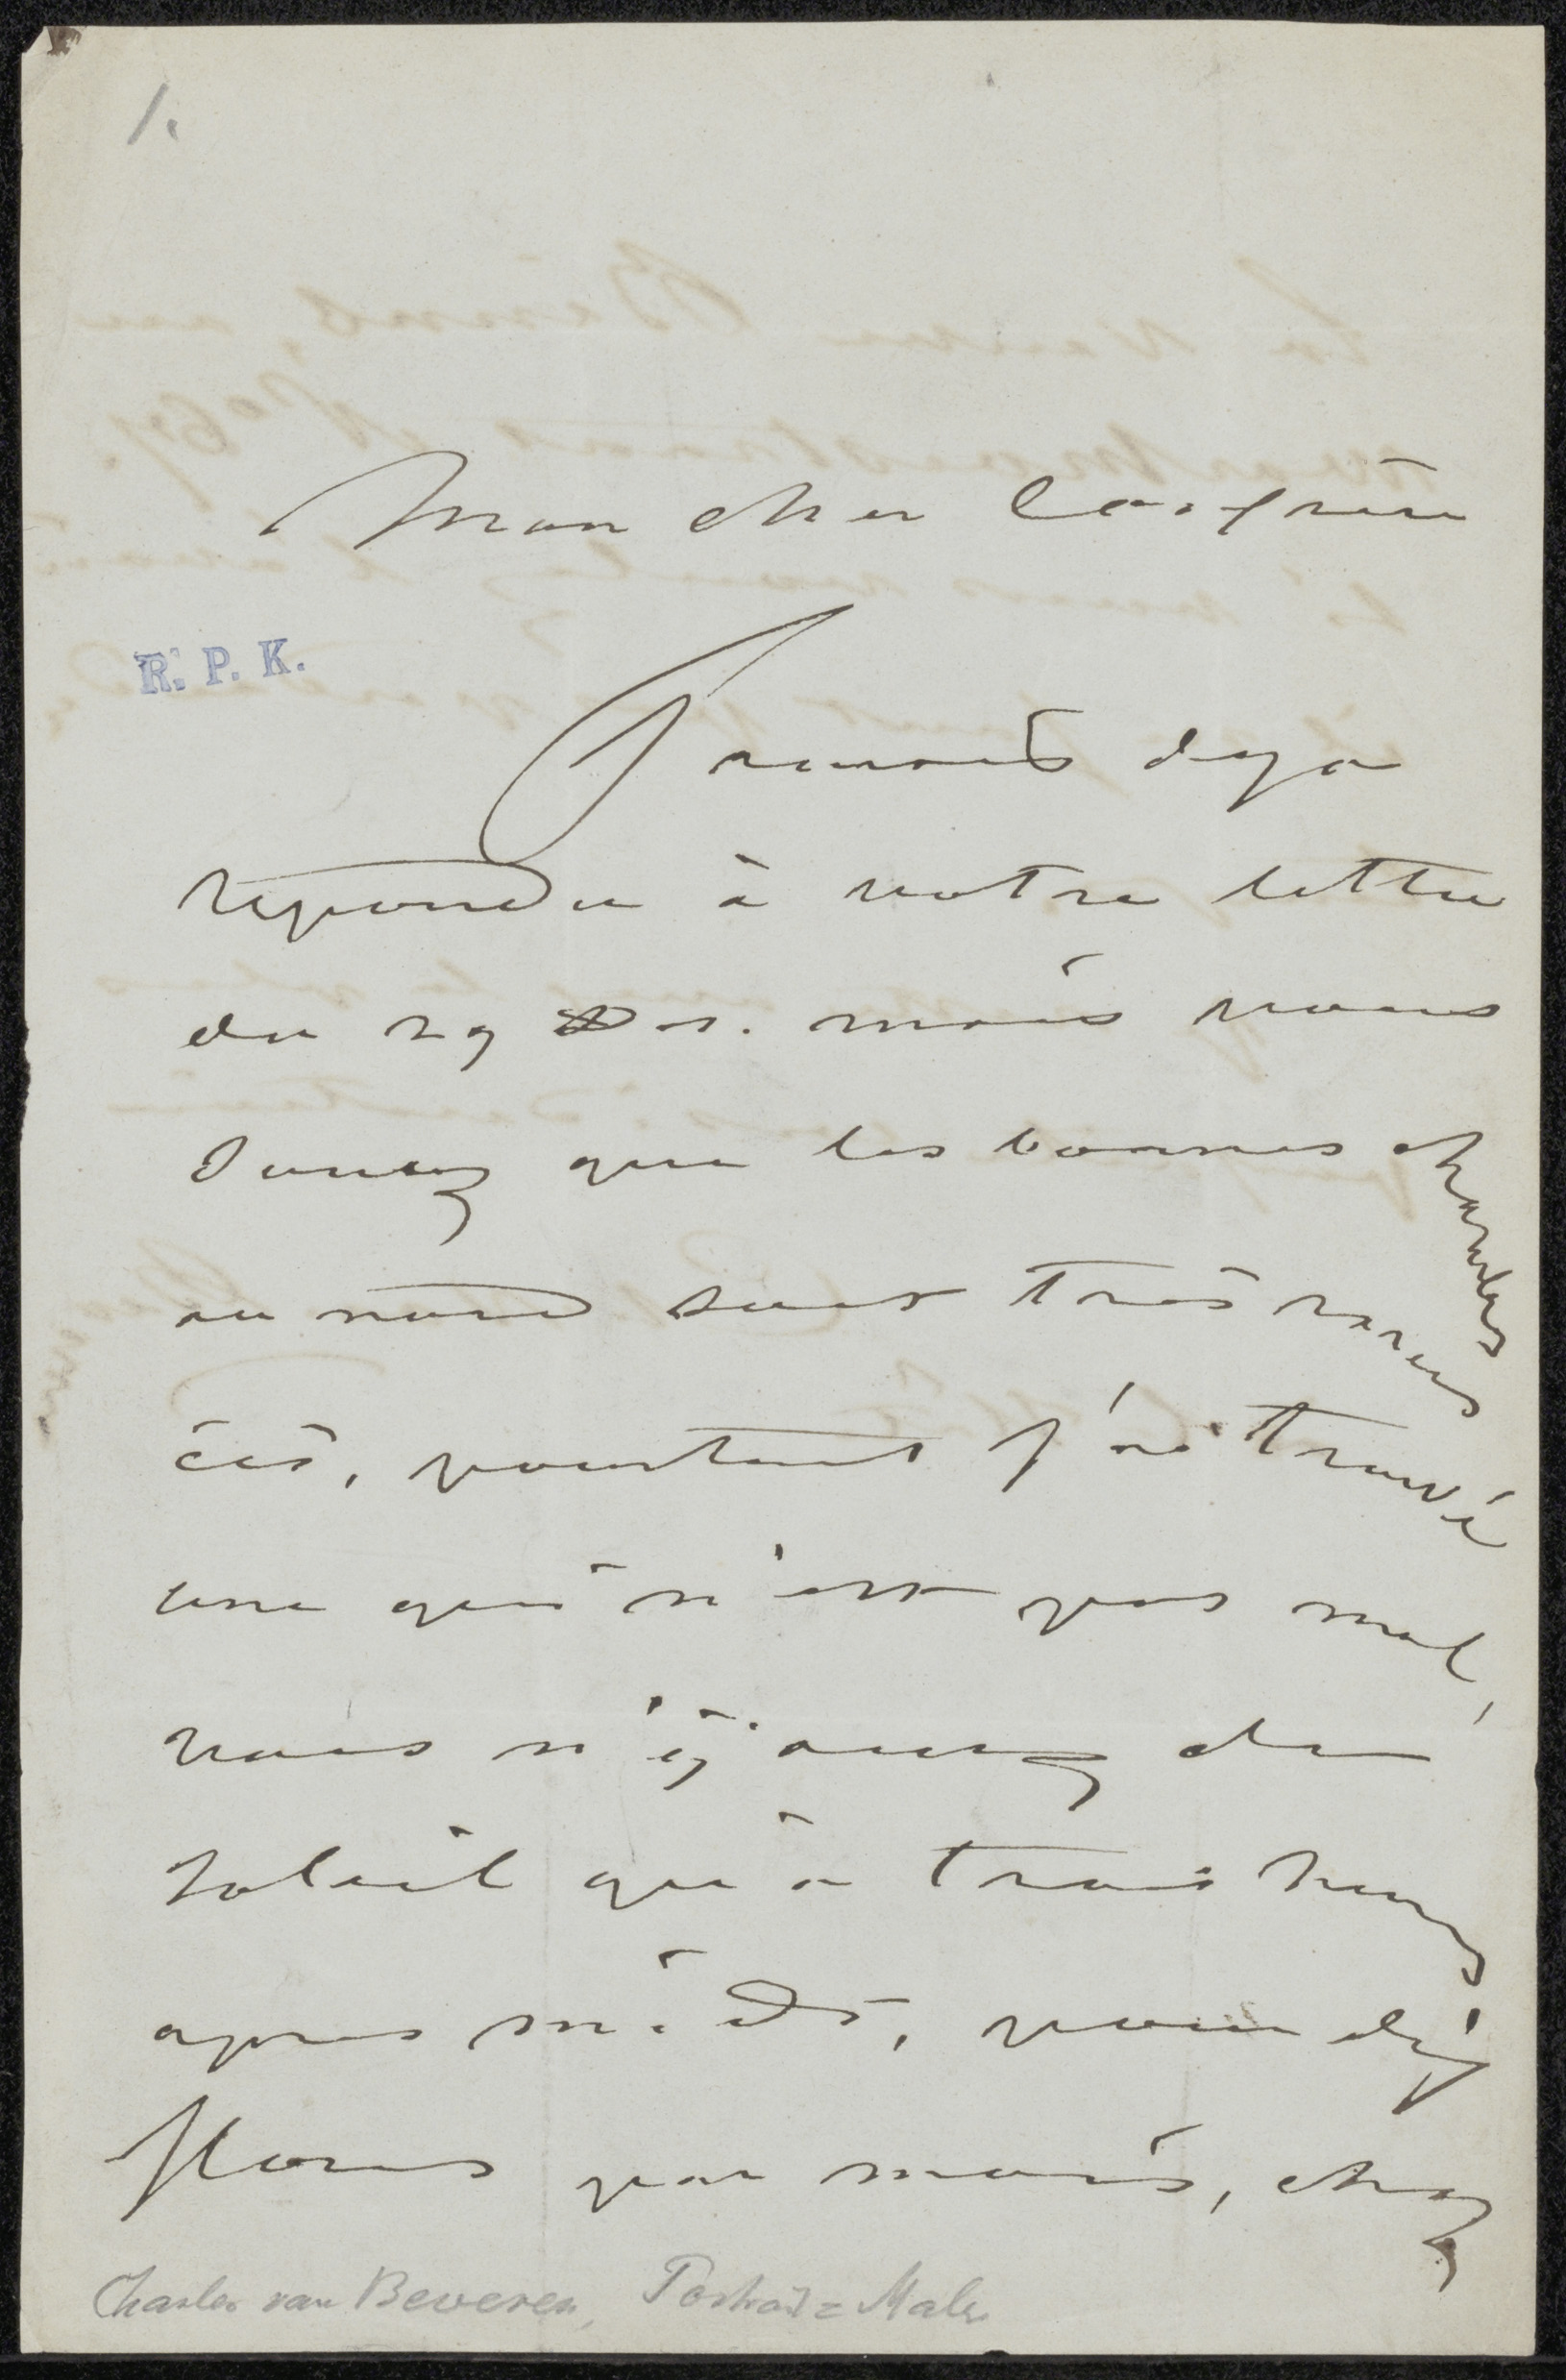 1.
Mon cher Confrère
R. P. K.
J'aurais deja
repondu à votre lettre
du 29 mais vous
savez que les bonnes chambres
au nord sont très rares
ici, pourtant j'ai trouvé
une qui n'est pas mal,
vous n'ÿ aurez du
soleil qu'a trois heures
apres midi, pour dix
florins par mois, chez
Charles van Beveren, Porträt = Maler